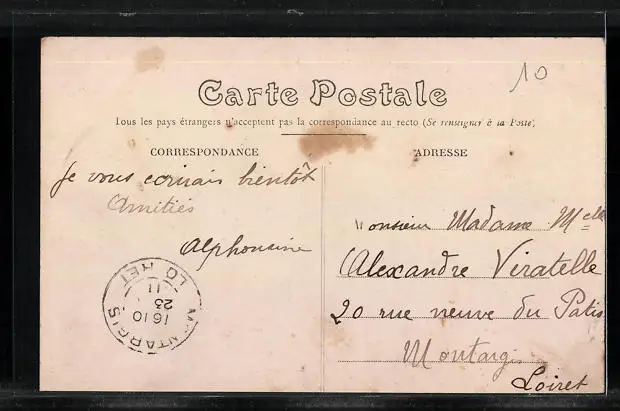 10
Carte Postale
Tous les pays étrangers n'acceptent pas la correspondance au recto (Se renseigner à la Poste)
CORRESPONDANCE
ADRESSE
Je vous écrirais bientôt
Amitiés
Alphonsine
Monsieur Madame Melle
Alexandre Viratelle
20 rue neuve du Patis
Montargis
Loiret
MONTARGIS
LOIRET
1610
23
11